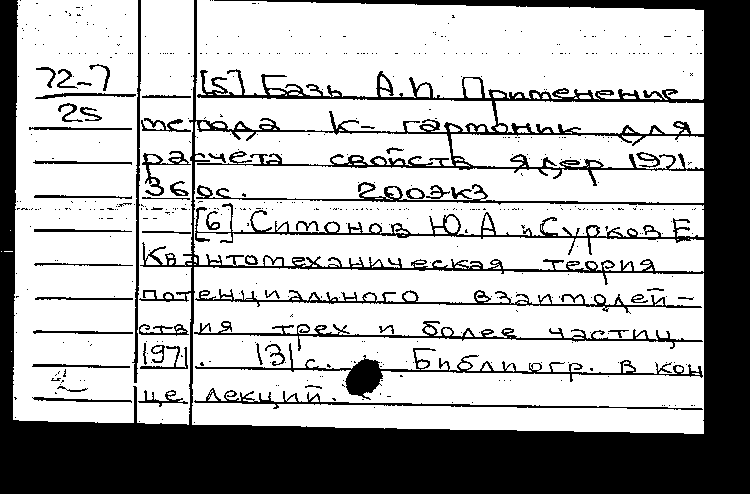 72-7 [5]. Базь А.И. Применение
25 метода К- гармоник для
расчета свойств ядер 1971.
360с. 200экз
[6]. Симонов Ю.А. и Сурков Е.
Квантомеханическая теория
потенциального взаимодей-
ствия трех и более частиц.
1971. 131с. Библиогр. в кон
це лекций.